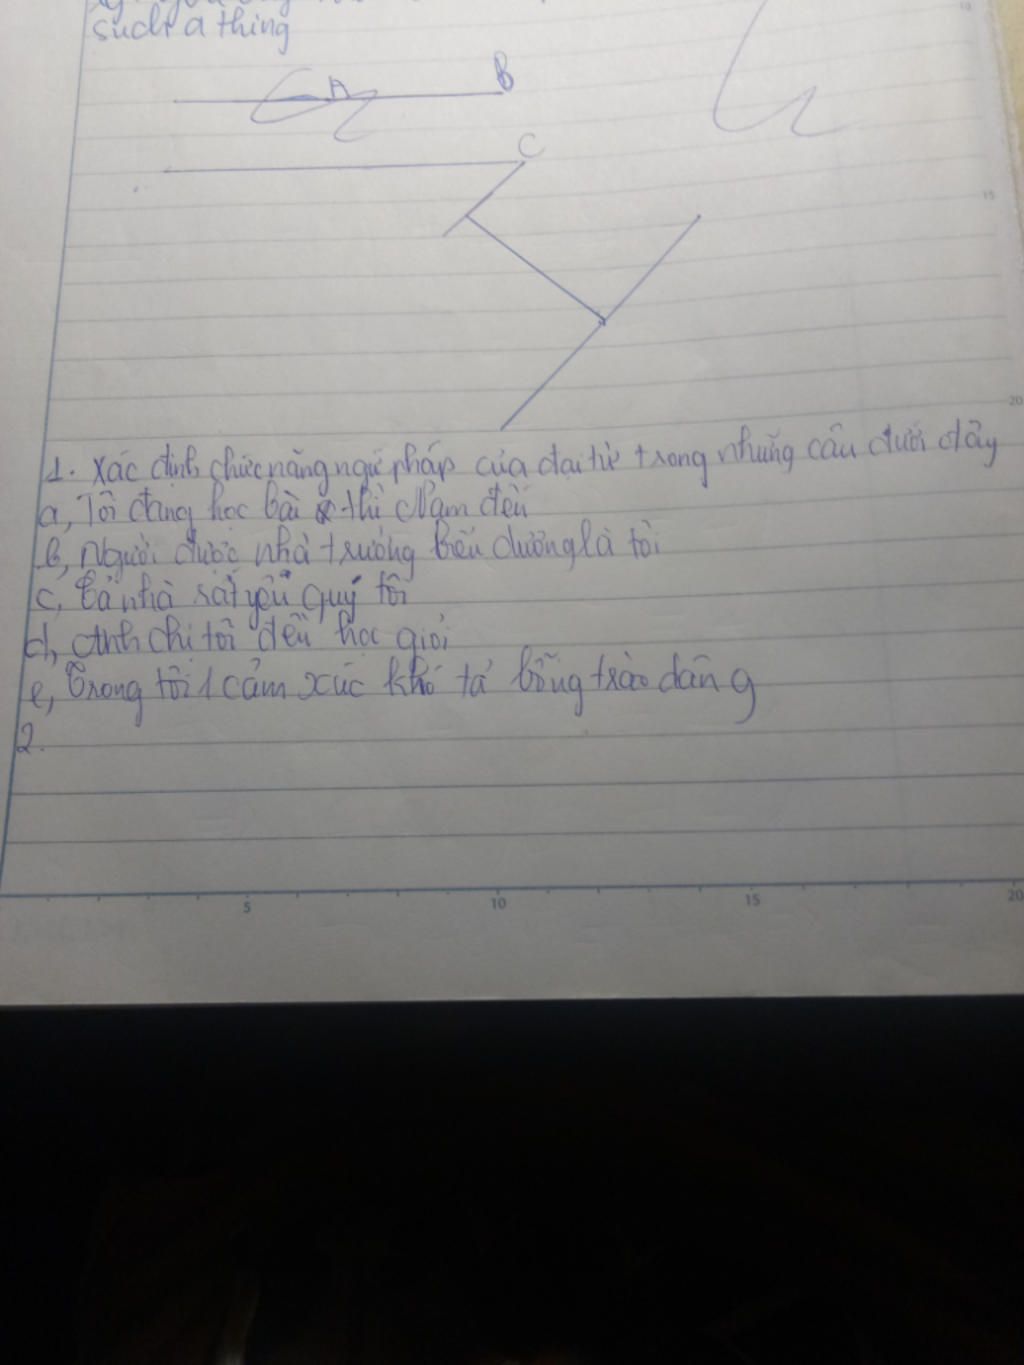 such a thing
A
B
C
1. Xác định chức năng ngữ pháp của đại từ trong những câu dưới đây
a, Tôi đang học bài thì Nam đến
b, Người được nhà trường biểu dương là tôi
c, Cả nhà rất yêu quý tôi
d, Anh chị tôi đều học giỏi
e, Trong tôi 1 cảm xúc khó tả bỗng trào dâng
2.
5
10
15
20
10
15
20